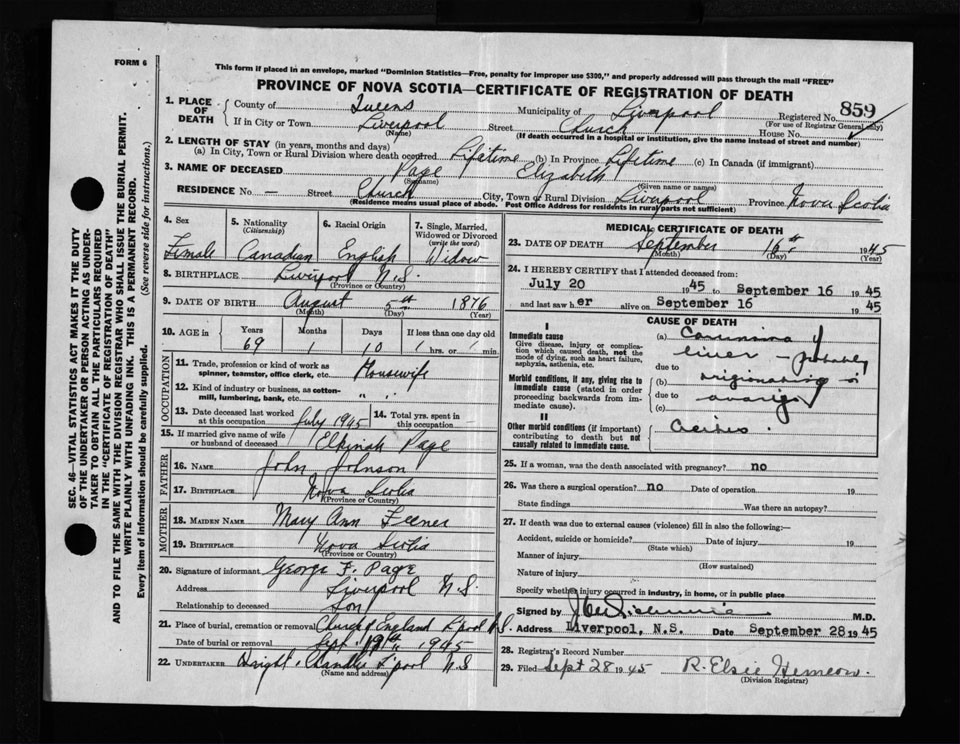 FORM 6
This form if placed in an envelope, marked "Dominion Statistics—Free, penalty for improper use $300," and properly addressed will pass through the mail "FREE"
PROVINCE OF NOVA SCOTIA—CERTIFICATE OF REGISTRATION OF DEATH
SEC. 46—VITAL STATISTICS ACT MAKES IT THE DUTY
OF THE UNDERTAKER OR PERSON ACTING AS UNDER-
TAKER TO OBTAIN ALL THE PARTICULARS REQUIRED
IN THE "CERTIFICATE OF REGISTRATION OF DEATH"
AND TO FILE THE SAME WITH THE DIVISION REGISTRAR WHO SHALL ISSUE THE BURIAL PERMIT.
WRITE PLAINLY WITH UNFADING INK. THIS IS A PERMANENT RECORD.
Every item of information should be carefully supplied. (See reverse side for instructions.)
1. PLACE OF DEATH { County of Queens Municipality of Liverpool Registered No. 859
(For use of Registrar General only)
If in City or Town Liverpool Street Church House No.
(Name) (If death occurred in a hospital or institution, give the name instead of street and number)
2. LENGTH OF STAY (in years, months and days)
(a) In City, Town or Rural Division where death occurred Lifetime (b) In Province Lifetime (c) In Canada (if immigrant)
3. NAME OF DECEASED Page Elizabeth
(Surname) (Given name or names)
RESIDENCE No. — Street Church City, Town or Rural Division Liverpool Province Nova Scotia
(Residence means usual place of abode. Post Office Address for residents in rural parts not sufficient)
4. Sex Female
5. Nationality (Citizenship) Canadian
6. Racial Origin English
7. Single, Married, Widowed or Divorced (write the word) Widow
8. BIRTHPLACE Liverpool N.S.
(Province or Country)
9. DATE OF BIRTH August 5th 1876
(Month) (Day) (Year)
10. AGE in Years Months Days If less than one day old
69 1 10 hrs. or min.
OCCUPATION
11. Trade, profession or kind of work as spinner, teamster, office clerk, etc. Housewife
12. Kind of industry or business, as cotton-mill, lumbering, bank, etc. " "
13. Date deceased last worked at this occupation July 1945
14. Total yrs. spent in this occupation
15. If married give name of wife or husband of deceased Elkynah Page
FATHER
16. NAME John Johnson
17. BIRTHPLACE Nova Scotia
(Province or Country)
MOTHER
18. MAIDEN NAME Mary Ann Feener
19. BIRTHPLACE Nova Scotia
(Province or Country)
20. Signature of informant George F. Page
Address Liverpool N.S.
Relationship to deceased Son
21. Place of burial, cremation or removal Church of England L'pool N.S.
Date of burial or removal Sept. 19th 1945
22. UNDERTAKER Chandler L'pool N S
(Name and address)
MEDICAL CERTIFICATE OF DEATH
23. DATE OF DEATH September 16th 1945
(Month) (Day) (Year)
24. I HEREBY CERTIFY that I attended deceased from:
July 20 1945 to September 16 1945
and last saw her alive on September 16 1945
CAUSE OF DEATH
I
Immediate cause
Give disease, injury or complication which caused death, not the mode of dying, such as heart failure, asphyxia, asthenia, etc.
(a) Carcinoma of liver — probably
due to
Morbid conditions, if any, giving rise to immediate cause (stated in order proceeding backwards from immediate cause).
(b) originating in
due to
(c)
II
Other morbid conditions (if important) contributing to death but not causally related to immediate cause.
25. If a woman, was the death associated with pregnancy? no
26. Was there a surgical operation? no Date of operation 19
State findings Was there an autopsy?
27. If death was due to external causes (violence) fill in also the following:—
Accident, suicide or homicide? Date of injury 19
(State which)
Manner of injury
(How sustained)
Nature of injury
Specify whether injury occurred in industry, in home, or in public place
Signed by M.D.
Address Liverpool, N.S. Date September 28 1945
28. Registrar's Record Number
29. Filed Sept 28 1945 R. Elsie
(Division Registrar)